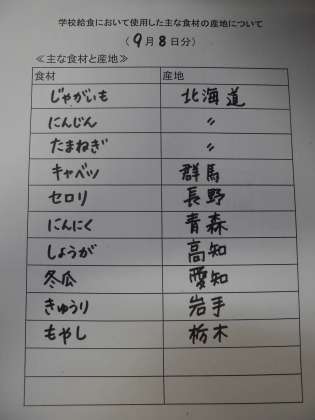 学校給食において使用した主な食材の産地について
(9月8日分)
≪主な食材と産地≫
食材 産地
じゃがいも 北海道
にんじん 〃
たまねぎ 〃
キャベツ 群馬
セロリ 長野
にんにく 青森
しょうが 高知
冬瓜 愛知
きゅうり 岩手
もやし 栃木